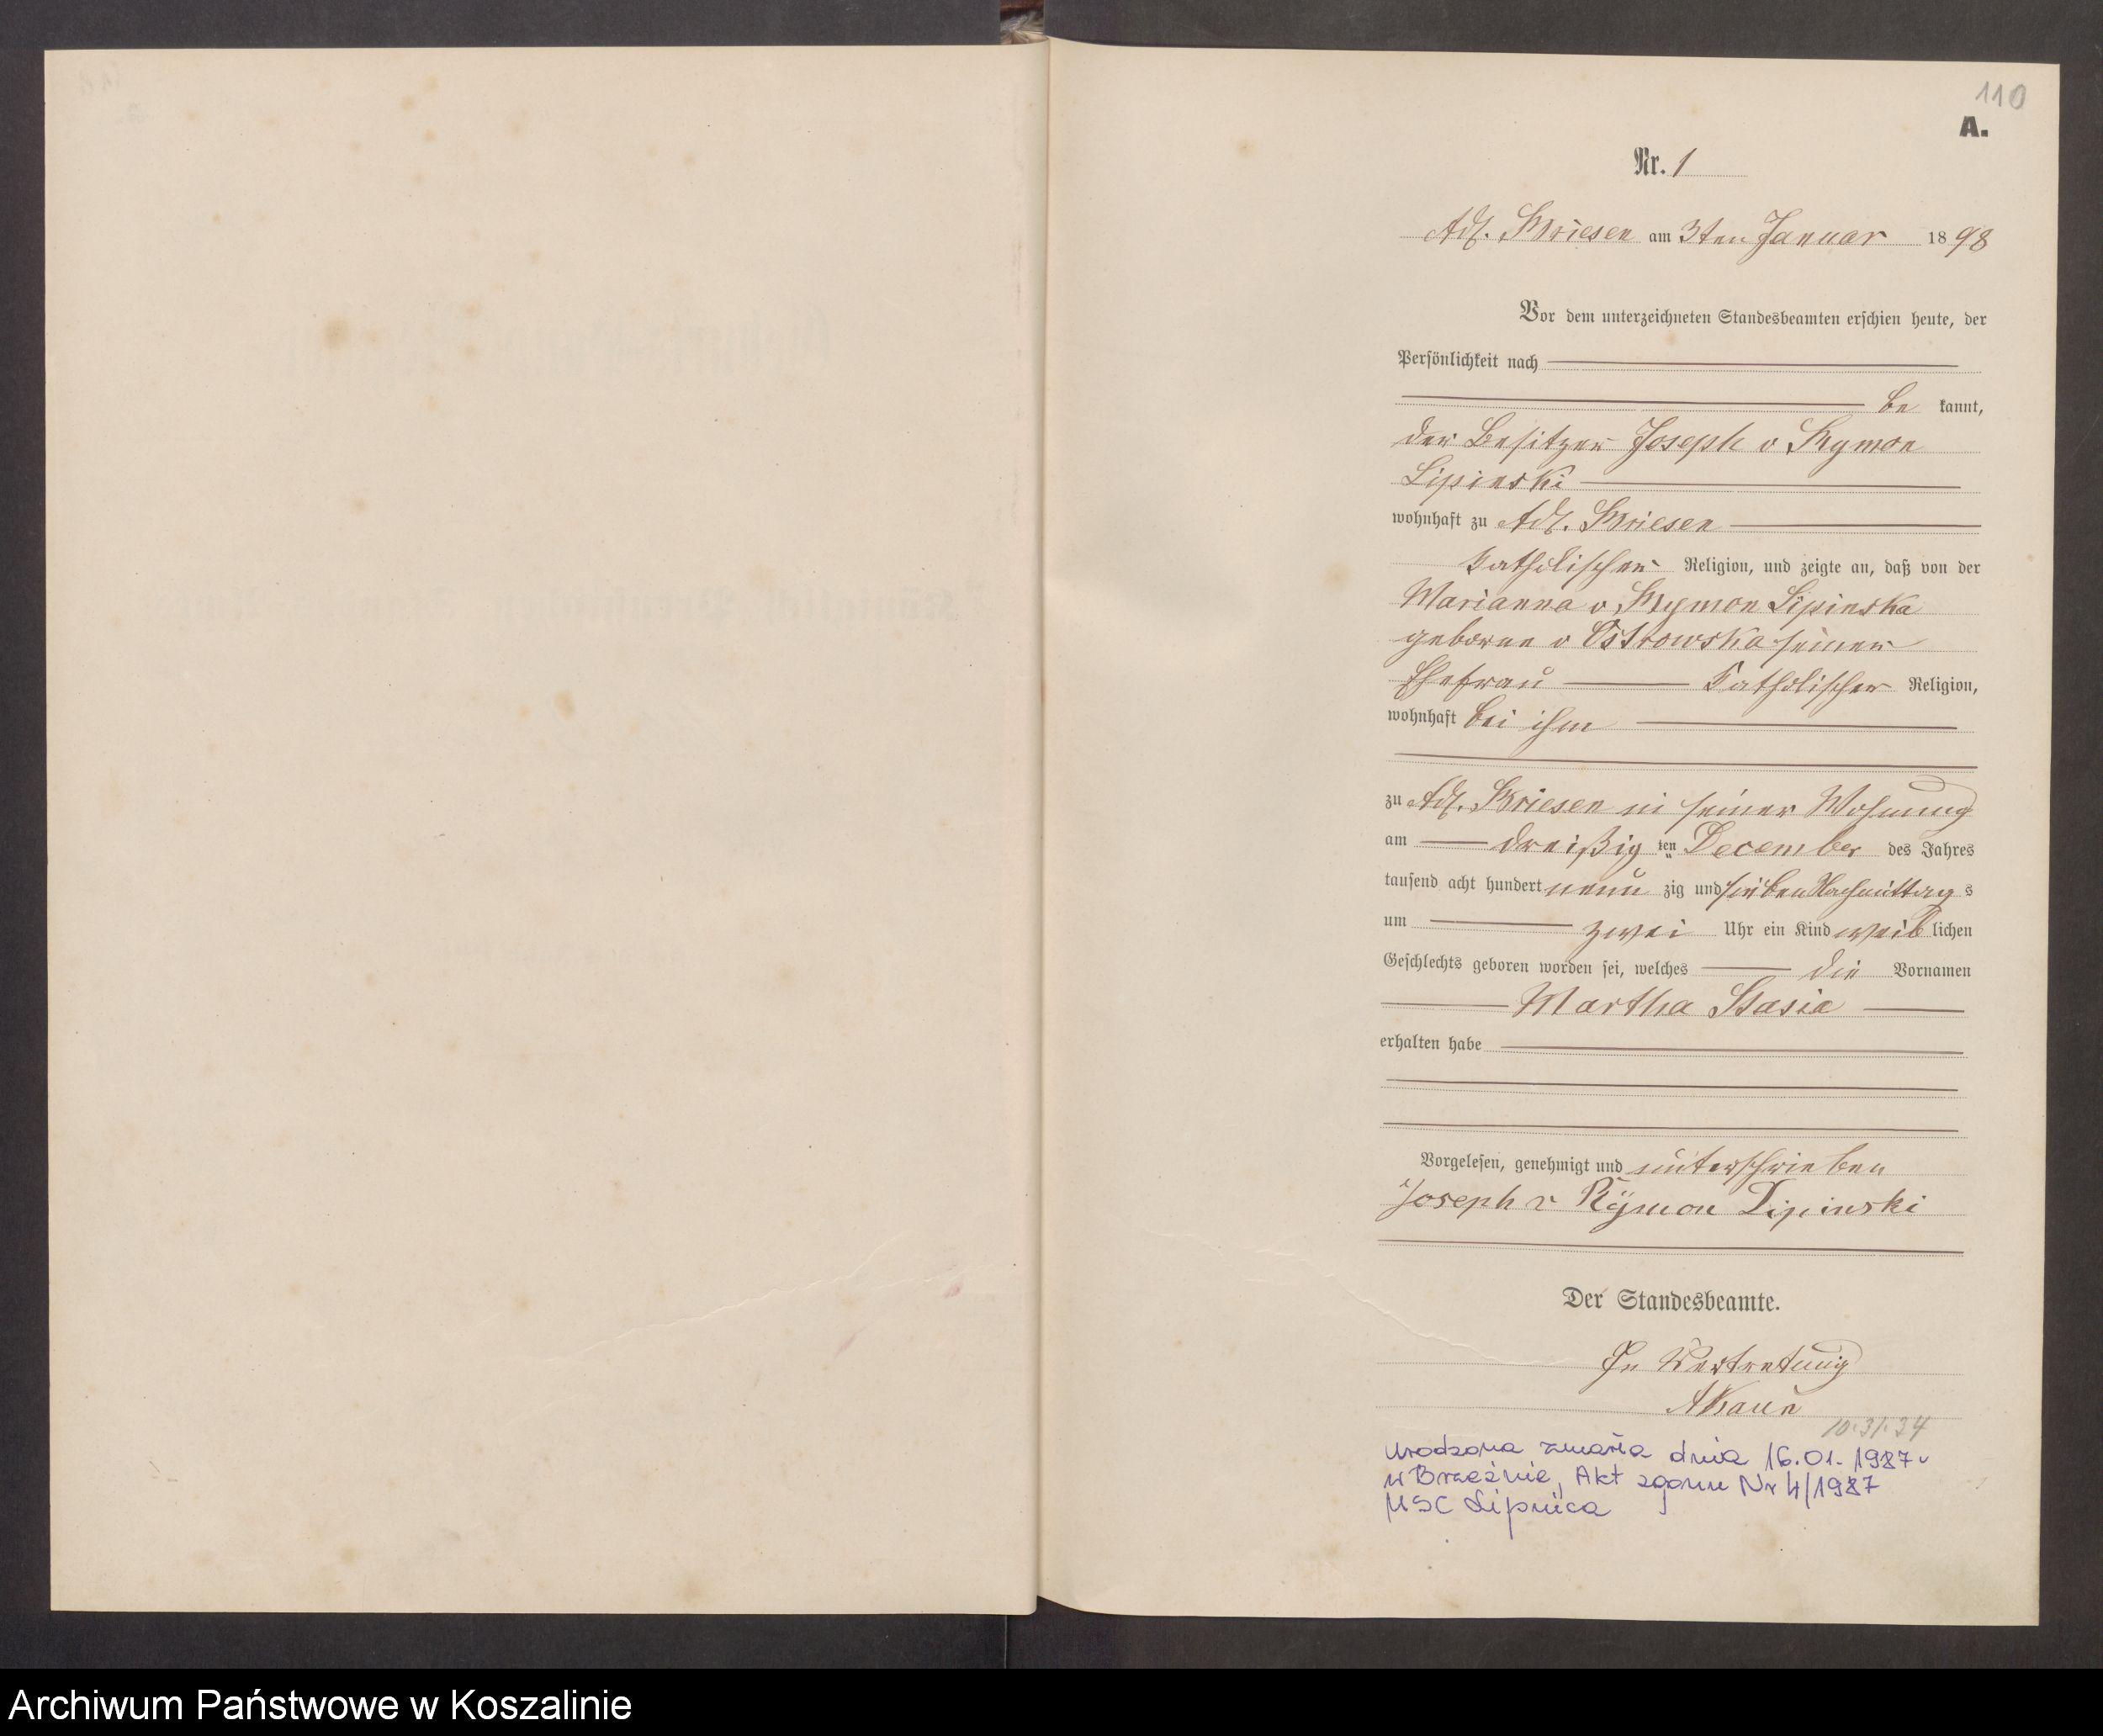 110
A.
Nr. 1
Adl. Briesen am 3ten Januar 1898
Vor dem unterzeichneten Standesbeamten erschien heute, der
Persönlichkeit nach
be kannt,
der Besitzer Joseph v Rymon
Lipinski
wohnhaft zu Adl. Briesen
katholischer Religion, und zeigte an, daß von der
Marianna v Rymon Lipinska
geborne v Ostrowska seiner
Ehefrau katholischer Religion,
wohnhaft bei ihm
zu Adl. Briesen in seiner Wohnung
am dreißig ten December des Jahres
tausend acht hundert neun zig und sieben Nachmittag s
um zwei Uhr ein Kind weib lichen
Geschlechts geboren worden sei, welches die Vornamen
Martha Stasia
erhalten habe
Vorgelesen, genehmigt und unterschrieben
Joseph v Rÿmon Lipinski
Der Standesbeamte.
In Vertretung
10.31.34
Urodzona zmarła dnia 16.01.1987 r
w Brzeźnie, Akt zgonu Nr 4/1987
USC Lipnica
Archiwum Państwowe w Koszalinie